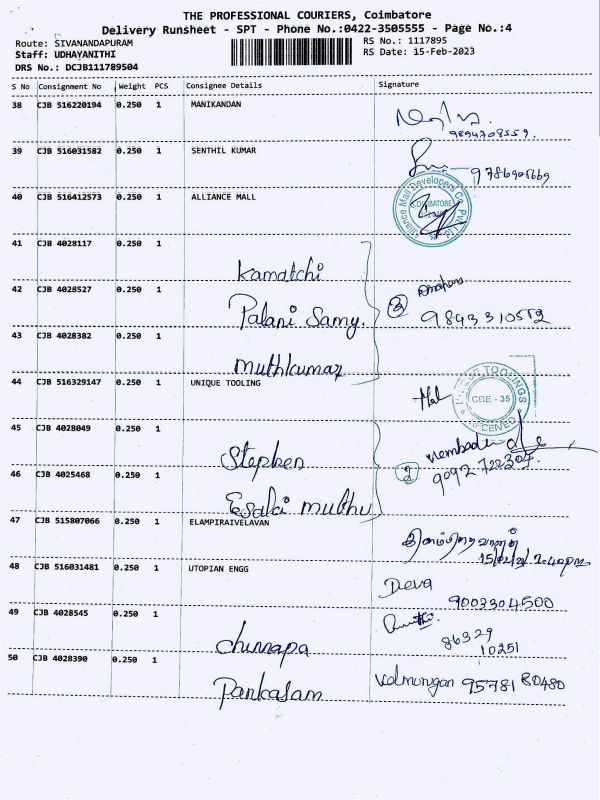 THE PROFESSIONAL COURIERS, Coimbatore
Delivery Runsheet - SPT - Phone No.:0422-3505555 - Page No.:4
Route: SIVANANDAPURAM
RS No.: 1117895
Staff: UDHAYANITHI
RS Date: 15-Feb-2023
DRS No.: DCJB111789504
S No Consignment No Weight PCS Consignee Details Signature
38 CJB 516220194 0.250 1 MANIKANDAN
9894708559.
39 CJB 516031582 0.250 1 SENTHIL KUMAR
9786901669
40 CJB 516412573 0.250 1 ALLIANCE MALL
Alliance Mall Developers Co Pvt Ltd
COIMBATORE
41 CJB 4028117 0.250 1
Kamatchi
42 CJB 4028527 0.250 1
Palani Samy.
③
9843310552
43 CJB 4028382 0.250 1
muthkumar
44 CJB 516329147 0.250 1 UNIQUE TOOLING
UNIQUE TOOLINGS
CBE - 35
45 CJB 4028049 0.250 1
Stephen
②
9092722307.
46 CJB 4025468 0.250 1
Esaki muthu
47 CJB 515807066 0.250 1 ELAMPIRAIVELAVAN
48 CJB 516031481 0.250 1 UTOPIAN ENGG
Deva
9003304500
49 CJB 4028545 0.250 1
Chinnapa
86329
10251
50 CJB 4028390 0.250 1
Pankasam
Valmurugan 95781 80480